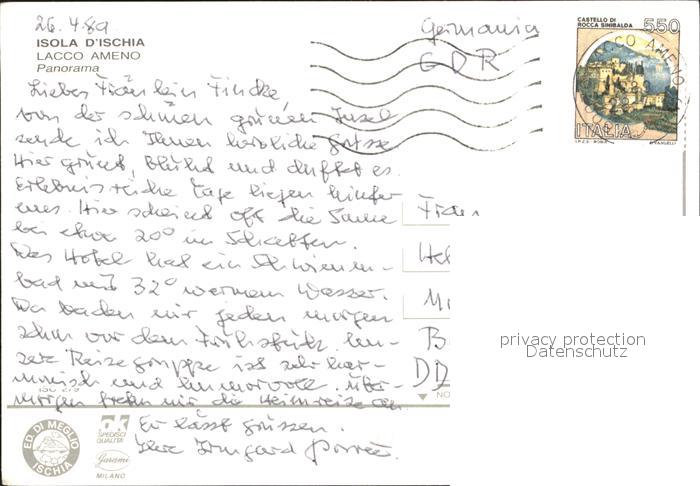 26.4.89
ISOLA D'ISCHIA
LACCO AMENO
Panorama
Germania
GDR
CASTELLO DI
ROCCA SINIBALDA
550
ITALIA
I.P.Z.S. ROMA
Liebes Fräulein Fincke,
von der schönen grünen Insel
sende ich Ihnen herzliche Grüsse
Hier grünt, blüht und duftet es.
Erlebnisreiche Tage liegen hinter
uns. Hier scheint oft die Sonne
bei etwa 20° im Schatten.
Das Hotel hat ein Schwimm-
bad mit 32° warmem Wasser.
Da baden wir jeden morgen
schon vor dem Frühstück. Un-
sere Reisegruppe ist sehr har-
monisch und humorvoll. Über-
morgen treten wir die Heimreise an.
Er lässt grüssen.
Ihre Irmgard
privacy protection
Datenschutz
ED. DI MEGLIO
ISCHIA
ok
SPEDISCI
QUALITA'
Garami
MILANO